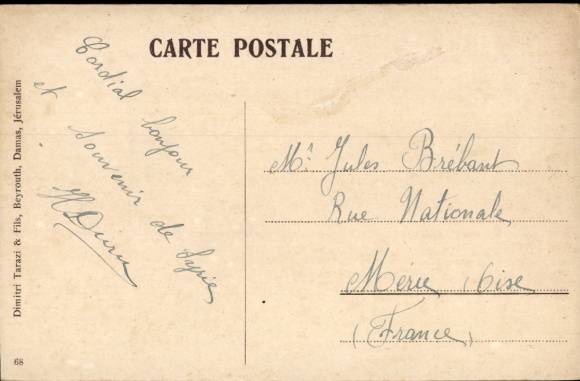 CARTE POSTALE
Cordial bonjour
et Souvenir de Syrie
Dimitri Tarazi & Fils, Beyrouth, Damas, Jérusalem
68
Mr Jules Brébant
Rue Nationale
Méru Oise
(France)